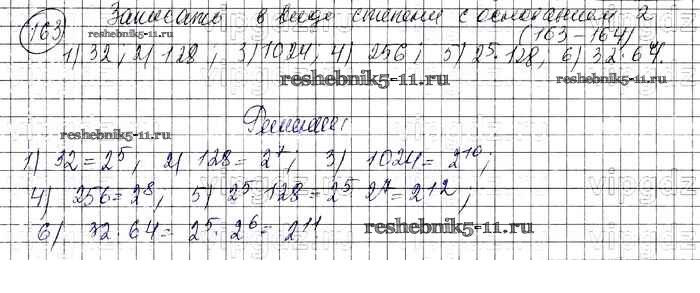 163 Записать в виде степени с основанием 2
(163-164)
1) 32, 2) 128, 3) 1024, 4) 256; 5) 2⁵·128, 6) 32·64.
reshebnik5-11.ru reshebnik5-11.ru
reshebnik5-11.ru
Решение:
1) 32 = 2⁵, 2) 128 = 2⁷; 3) 1024 = 2¹⁰;
4) 256 = 2⁸, 5) 2⁵·128 = 2⁵·2⁷ = 2¹²;
6) 32·64 = 2⁵·2⁶ = 2¹¹
reshebnik5-11.ru
vipgdz